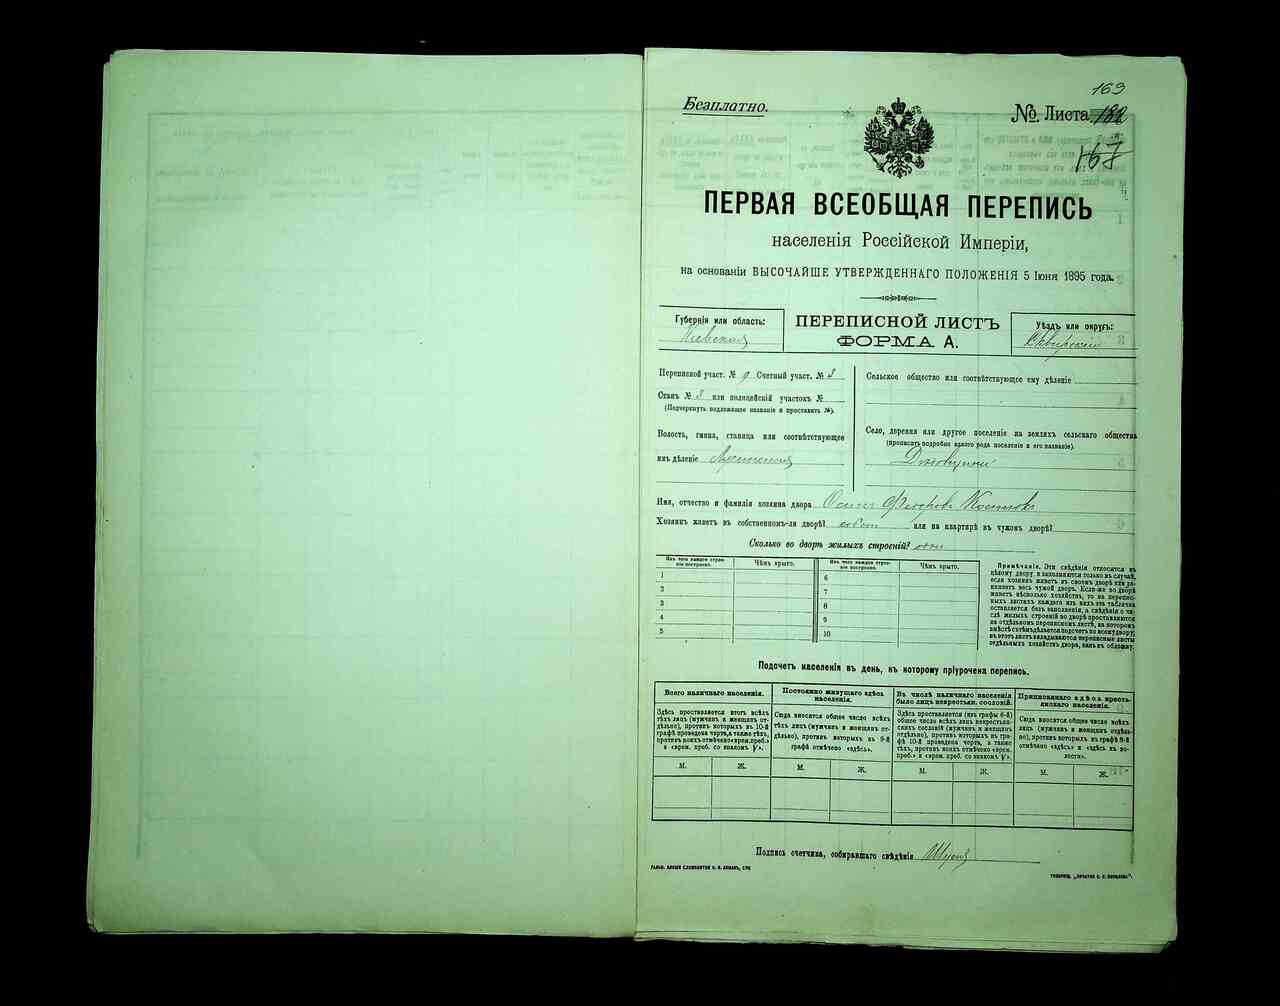 Безплатно.
169
№. Листа 182
167
ПЕРВАЯ ВСЕОБЩАЯ ПЕРЕПИСЬ
населенія Россійской Имперіи,
на основаніи ВЫСОЧАЙШЕ УТВЕРЖДЕННАГО ПОЛОЖЕНІЯ 5 Іюня 1895 года.
Губернія или область:
Кіевская
ПЕРЕПИСНОЙ ЛИСТЪ
ФОРМА А.
Уѣздъ или округъ:
Сквирскій
Переписной участ. № 9 Счетный участ. № 8
Станъ № 3 или полицейскій участокъ №
(Подчеркнуть подлежащее названіе и проставить №).
Волость, гмина, станица или соотвѣтствующее
имъ дѣленіе
Сельское общество или соотвѣтствующее ему дѣленіе
Село, деревня или другое поселеніе на земляхъ сельскаго общества
(прописать подробно какого рода поселеніе и его названіе).
Имя, отчество и фамилія хозяина двора
Хозяинъ живетъ въ собственномъ-ли дворѣ? собст или на квартирѣ въ чужомъ дворѣ?
Сколько во дворѣ жилыхъ строеній? одно
Изъ чего каждое строеніе построено.
Чѣмъ крыто.
Изъ чего каждое строеніе построено.
Чѣмъ крыто.
1
2
3
4
5
6
7
8
9
10
Примѣчаніе. Эти свѣдѣнія относятся къ
цѣлому двору и заполняются только въ случаѣ,
если хозяинъ живетъ въ своемъ дворѣ или занимаетъ весь чужой дворъ. Если-же во дворѣ
живетъ нѣсколько хозяйствъ, то на переписныхъ листахъ каждаго изъ нихъ эта табличка
оставляется безъ заполненія, а свѣдѣнія о числѣ жилыхъ строеній во дворѣ проставляются
на отдѣльномъ переписномъ листѣ, на которомъ
вмѣстѣ съ тѣмъ дѣлается подсчетъ по всему двору;
въ этотъ листъ вкладываются переписные листы
отдѣльныхъ хозяйствъ двора, какъ въ обложку.
Подсчетъ населенія въ день, къ которому пріурочена перепись.
Всего наличнаго населенія.
Здѣсь проставляется итогъ всѣхъ
тѣхъ лицъ (мужчинъ и женщинъ отдѣльно), противъ которыхъ въ 10-й
графѣ проведена черта, а также тѣхъ,
противъ коихъ отмѣчено «врем. преб.»
и «врем. проб. со знакомъ V».
М.
Ж.
Постоянно живущаго здѣсь
населенія.
Сюда вносятся общее число всѣхъ
тѣхъ лицъ (мужчинъ и женщинъ отдѣльно), противъ которыхъ въ 9-й
графѣ отмѣчено «здѣсь».
М.
Ж.
Въ числѣ наличнаго населенія
было лицъ некрестьян. сословій.
Здѣсь проставляется (изъ графы 6-й)
общее число всѣхъ лицъ некрестьянскихъ сословій (мужчинъ и женщинъ
отдѣльно), противъ которыхъ въ графѣ 10-й проведена черта, а также
тѣхъ, противъ коихъ отмѣчено «врем.
преб.» и «врем. проб. со знакомъ V».
М.
Ж.
Приписаннаго здѣсь крестьянскаго населенія.
Сюда вносятся общее число всѣхъ
лицъ (мужчинъ и женщинъ отдѣльно), противъ коихъ въ графѣ 8-й
отмѣчено «здѣсь» и «здѣсь въ волости».
М.
Ж.
Подпись счетчика, собиравшаго свѣдѣнія